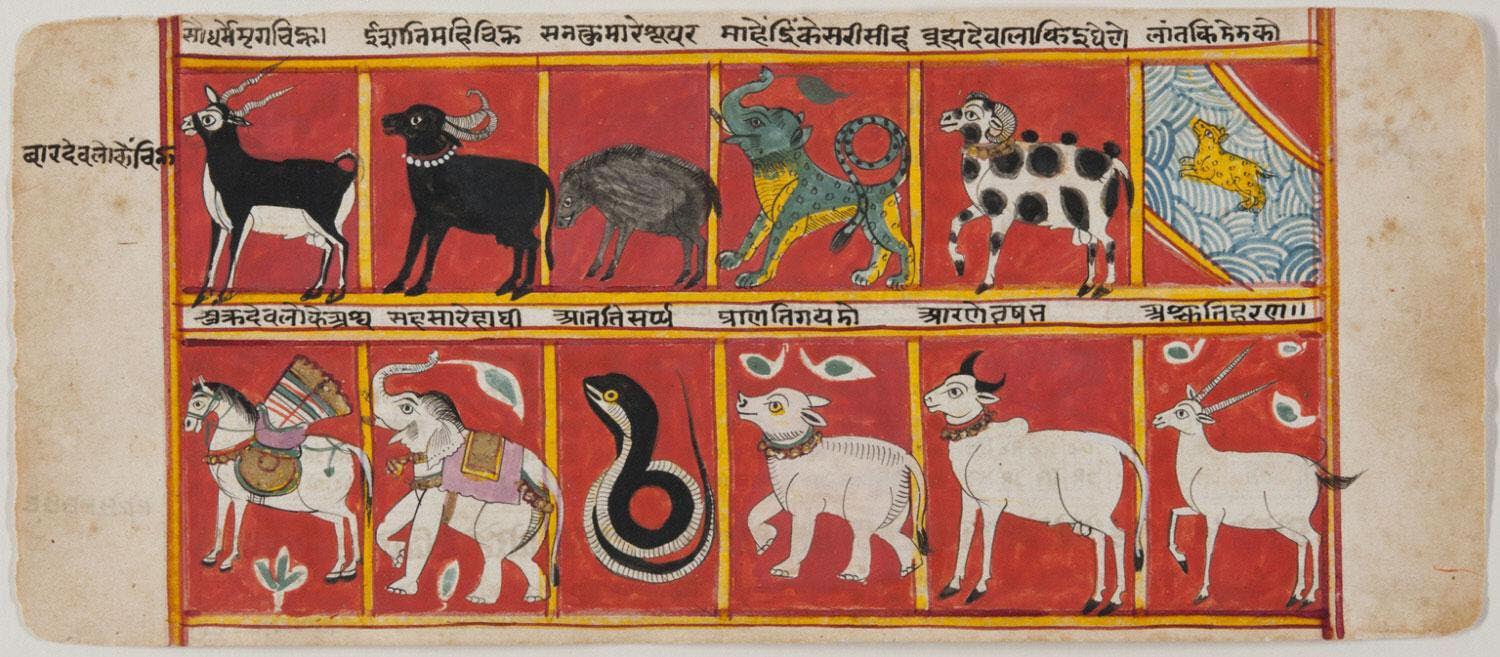 सौधर्ममृगचिह्न। ईशानिमहिचिह्न सनत्कुमारेशूयर माहेंद्रिकेसरीसीह ब्रह्मदेवलोकि लांतकि
बारदेवलोकेंचिह्न
शुक्रदेवलोकेअश्व सहसारेहाथी आनतिसर्प्प प्राणति आरणेवृषभ अच्युतिहरण॥